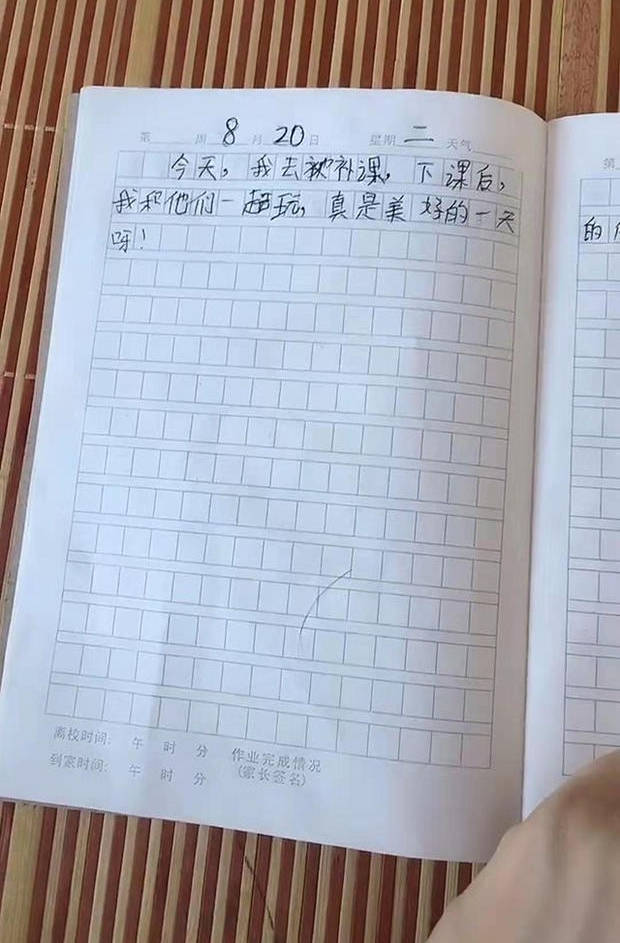 第 周 8 月 20 日 星期 二 天气
今天，我去补课，下课后，
我和他们一起玩，真是美好的一天
呀！
离校时间： 午 时 分 作业完成情况
到家时间： 午 时 分 (家长签名)
第
的